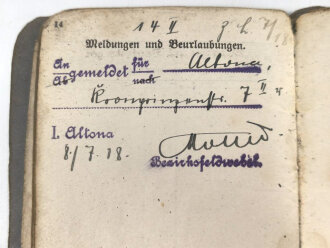 14
14 II
Meldungen und Beurlaubungen.
An für Altona,
Ab gemeldet nach
Kronprinzenstr. 7 II
I. Altona
8/7.18.
Bezirksfeldwebel.